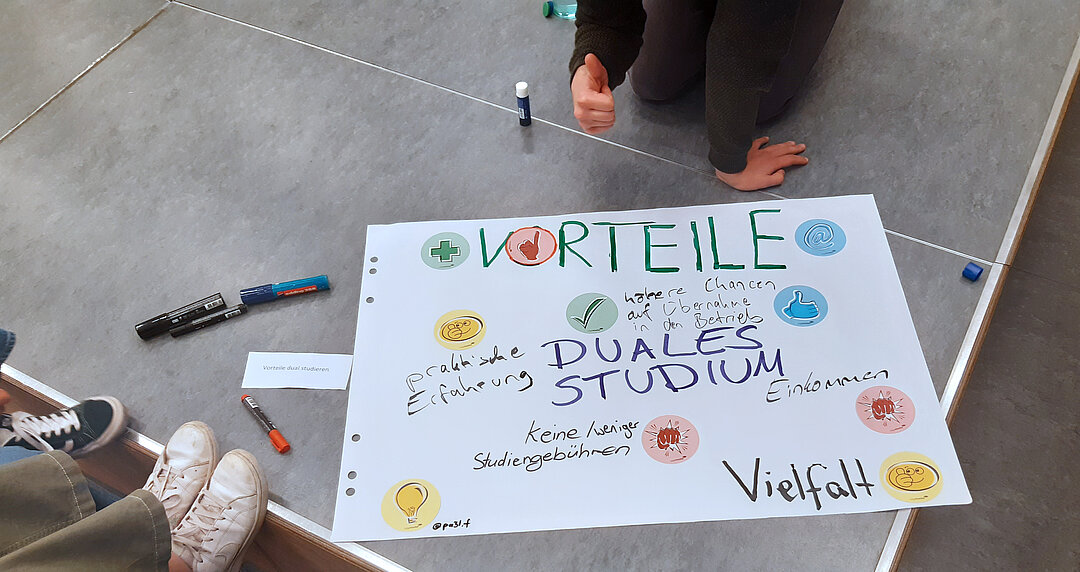 VORTEILE
höhere Chancen
auf Übernahme
in den Betrieb
praktische
Erfahrung
DUALES
STUDIUM
Einkommen
Keine/weniger
Studiengebühren
Vielfalt
Vorteile dual studieren